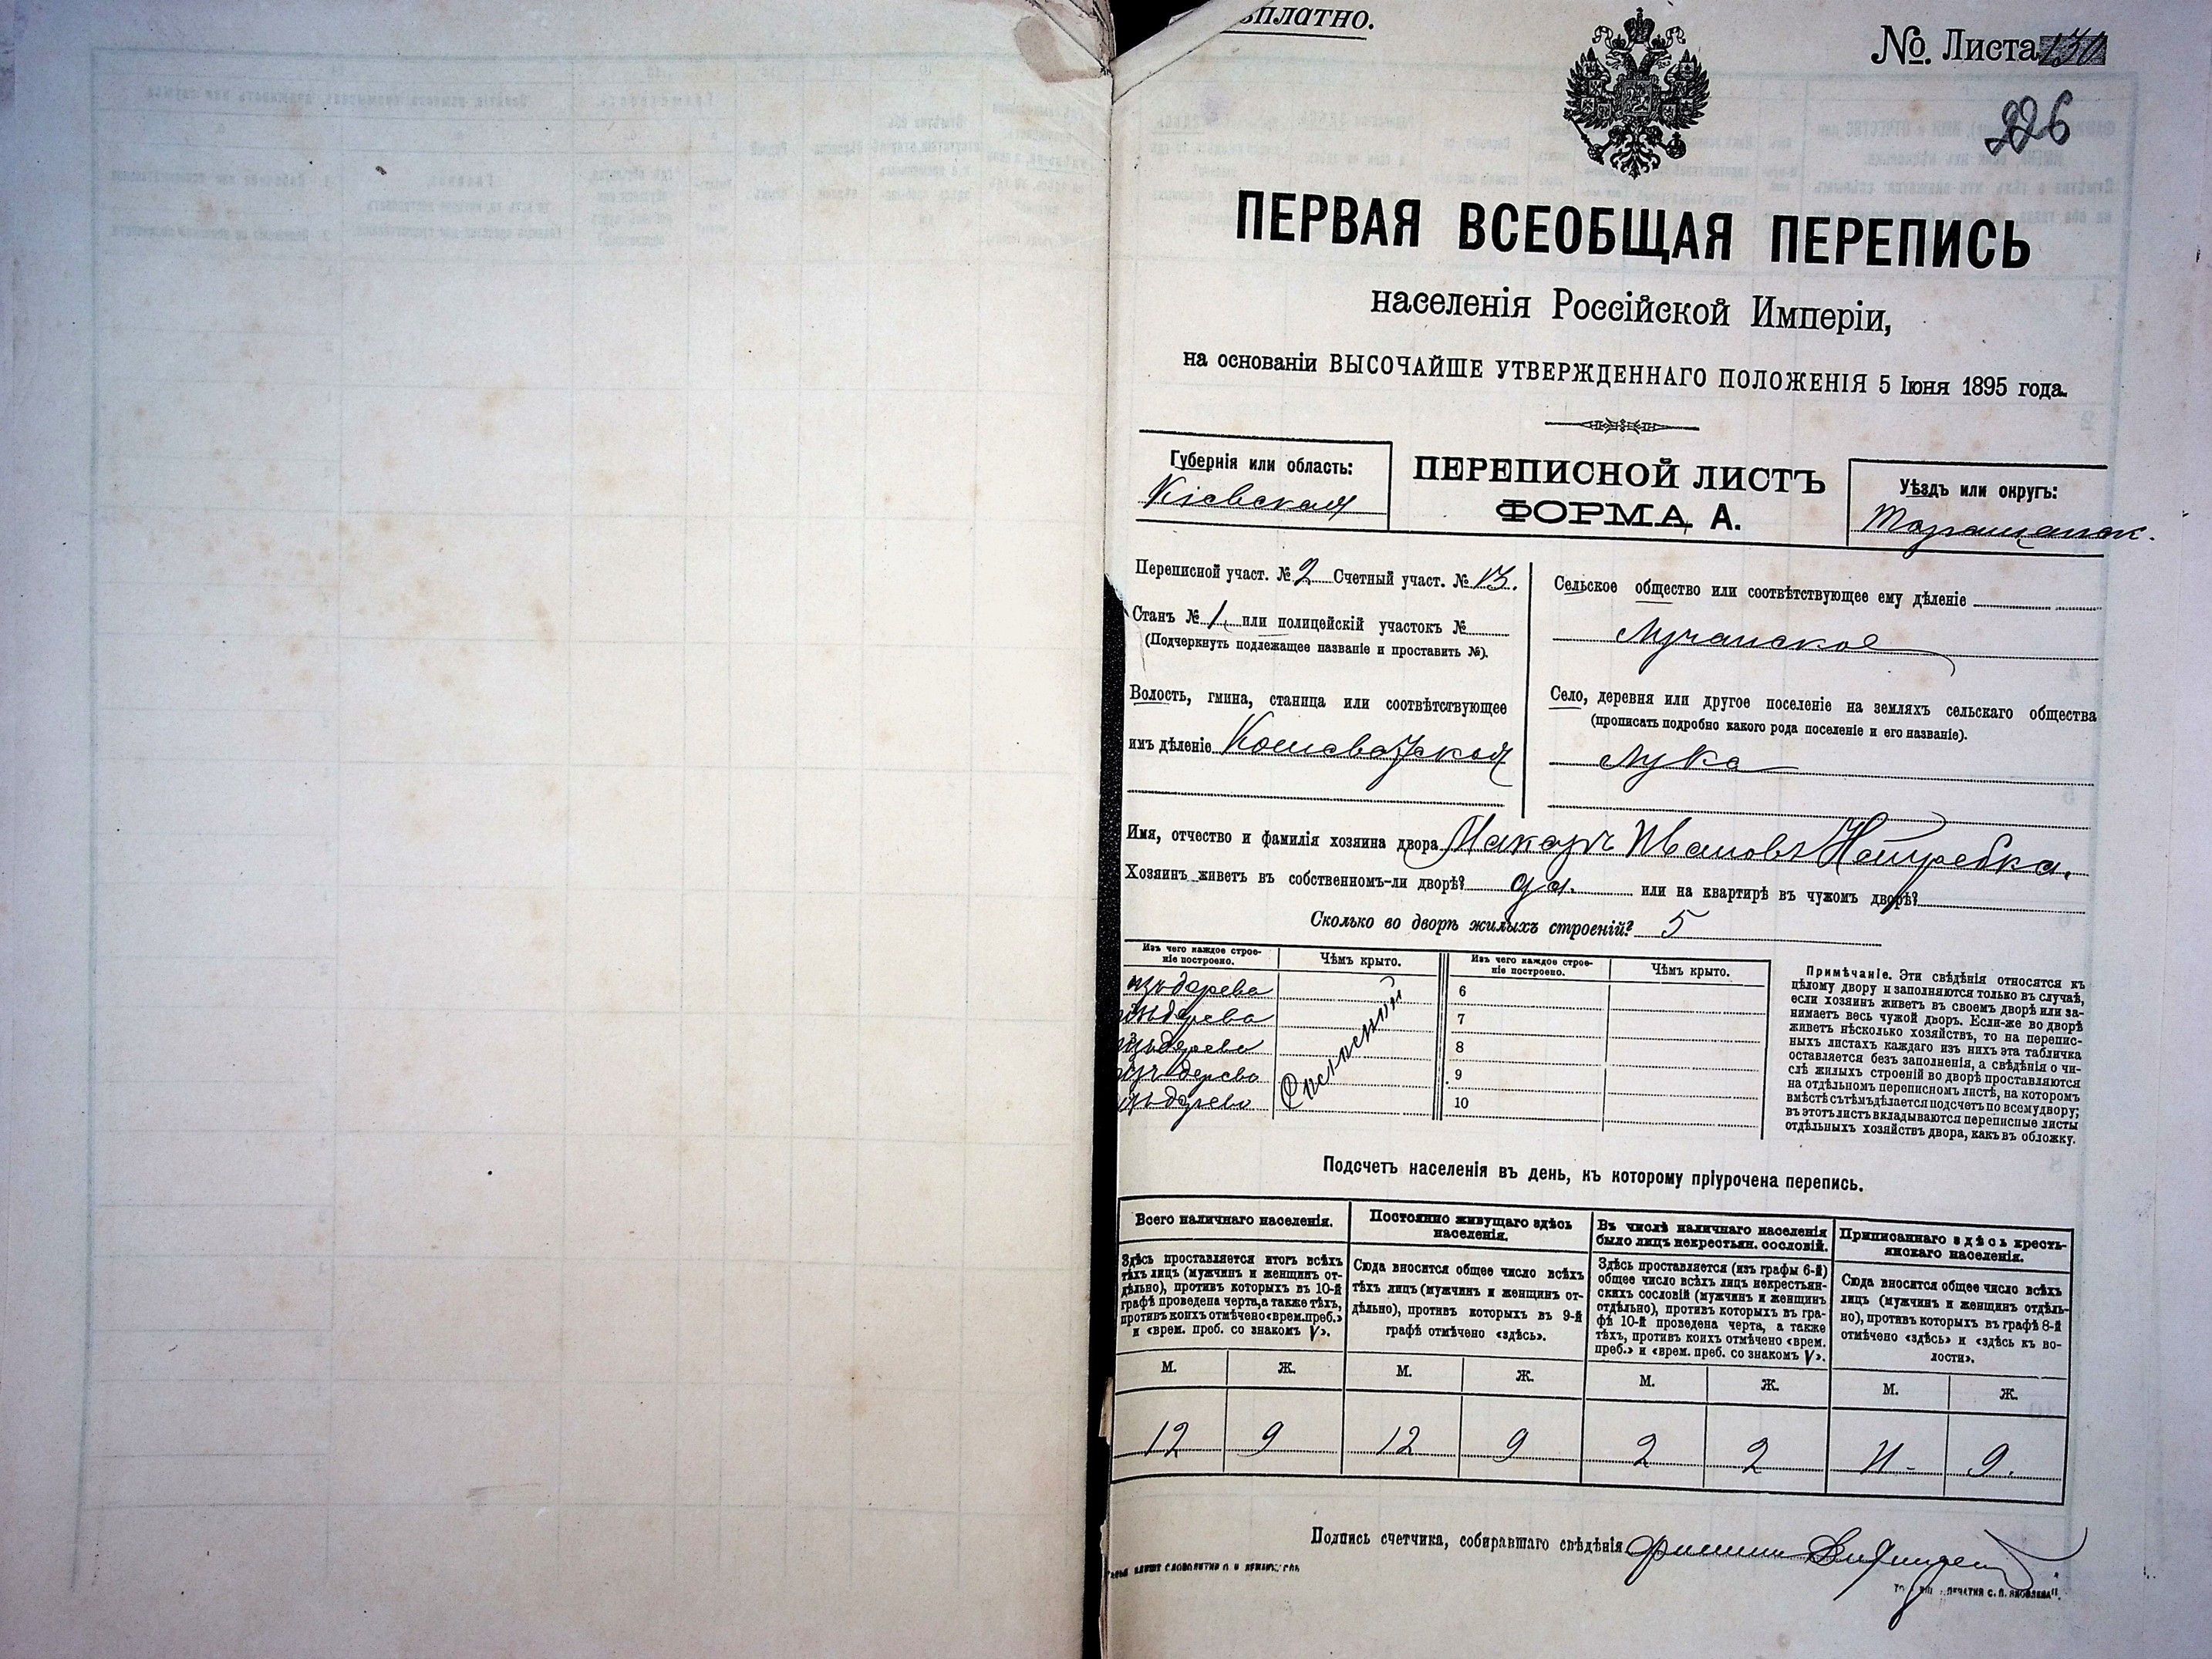 зплатно.
№ Листа 130
226
ПЕРВАЯ ВСЕОБЩАЯ ПЕРЕПИСЬ
населенія Россійской Имперіи,
на основаніи ВЫСОЧАЙШЕ УТВЕРЖДЕННАГО ПОЛОЖЕНІЯ 5 Іюня 1895 года.
Губернія или область:
Кіевская
ПЕРЕПИСНОЙ ЛИСТЪ
ФОРМА А.
Уѣздъ или округъ:
Таращанск.
Переписной участ. № 2 Счетный участ. № 13.
Станъ № 1 или полицейскій участокъ №
(Подчеркнуть подлежащее названіе и проставить №).
Волость, гмина, станица или соотвѣтствующее
имъ дѣленіе Кошеватская
Сельское общество или соотвѣтствующее ему дѣленіе
Лучанское
Село, деревня или другое поселеніе на земляхъ сельскаго общества
(прописать подробно какого рода поселеніе и его названіе).
Лука
Имя, отчество и фамилія хозяина двора Макаръ Ивановъ Нетребка.
Хозяинъ живетъ въ собственномъ-ли дворѣ? да. или на квартирѣ въ чужомъ дворѣ?
Сколько во дворѣ жилыхъ строеній? 5
Изъ чего каждое строе-
ніе построено.
Чѣмъ крыто.
Изъ чего каждое строе-
ніе построено.
Чѣмъ крыто.
изъ дерева
изъ дерева
изъ дерева
изъ дерева
изъ дерева
6
7
8
9
10
Примѣчаніе. Эти свѣдѣнія относятся къ
цѣлому двору и заполняются только въ случаѣ,
если хозяинъ живетъ въ своемъ дворѣ или за-
нимаетъ весь чужой дворъ. Если-же во дворѣ
живетъ нѣсколько хозяйствъ, то на перепис-
ныхъ листахъ каждаго изъ нихъ эта табличка
оставляется безъ заполненія, а свѣдѣнія о чи-
слѣ жилыхъ строеній во дворѣ проставляются
на отдѣльномъ переписномъ листѣ, на которомъ
вмѣстѣ съ тѣмъ дѣлается подсчетъ по всему двору;
въ этотъ листъ вкладываются переписные листы
отдѣльныхъ хозяйствъ двора, какъ въ обложку.
Подсчетъ населенія въ день, къ которому пріурочена перепись.
Всего наличнаго населенія.
Здѣсь проставляется итогъ всѣхъ
тѣхъ лицъ (мужчинъ и женщинъ от-
дѣльно), противъ которыхъ въ 10-й
графѣ проведена черта, а также тѣхъ,
противъ коихъ отмѣчено «врем. преб.»
и «врем. преб. со знакомъ V».
Постоянно живущаго здѣсь
населенія.
Сюда вносится общее число всѣхъ
тѣхъ лицъ (мужчинъ и женщинъ от-
дѣльно), противъ которыхъ въ 9-й
графѣ отмѣчено «здѣсь».
Въ числѣ наличнаго населенія
было лицъ некрестьян. сословій.
Здѣсь проставляется (изъ графы 6-й)
общее число всѣхъ лицъ некрестьян-
скихъ сословій (мужчинъ и женщинъ
отдѣльно), противъ которыхъ въ гра-
фѣ 10-й проведена черта, а также
тѣхъ, противъ коихъ отмѣчено «врем.
преб.» и «врем. преб. со знакомъ V».
Приписаннаго здѣсь кресть-
янскаго населенія.
Сюда вносится общее число всѣхъ
лицъ (мужчинъ и женщинъ отдѣль-
но), противъ которыхъ въ графѣ 8-й
отмѣчено «здѣсь» и «здѣсь къ во-
лости».
М. Ж. М. Ж. М. Ж. М. Ж.
12 9 12 9 2 2 11 9.
Подпись счетчика, собиравшаго свѣдѣнія